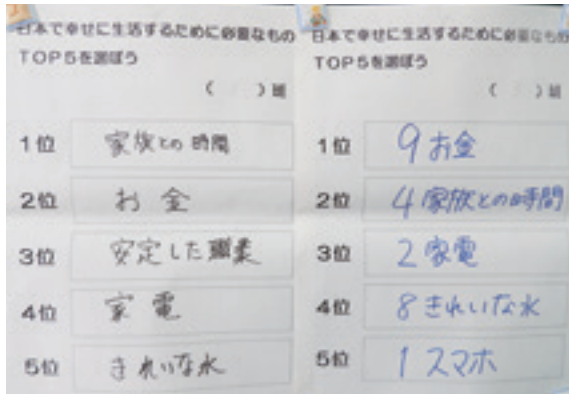 日本で幸せに生活するために必要なもの
TOP5を選ぼう
( ) 班
1位 家族との時間
2位 お金
3位 安定した職業
4位 家電
5位 きれいな水
日本で幸せに生活するために必要なもの
TOP5を選ぼう
( ) 班
1位 9 お金
2位 4 家族との時間
3位 2 家電
4位 8 きれいな水
5位 1 スマホ